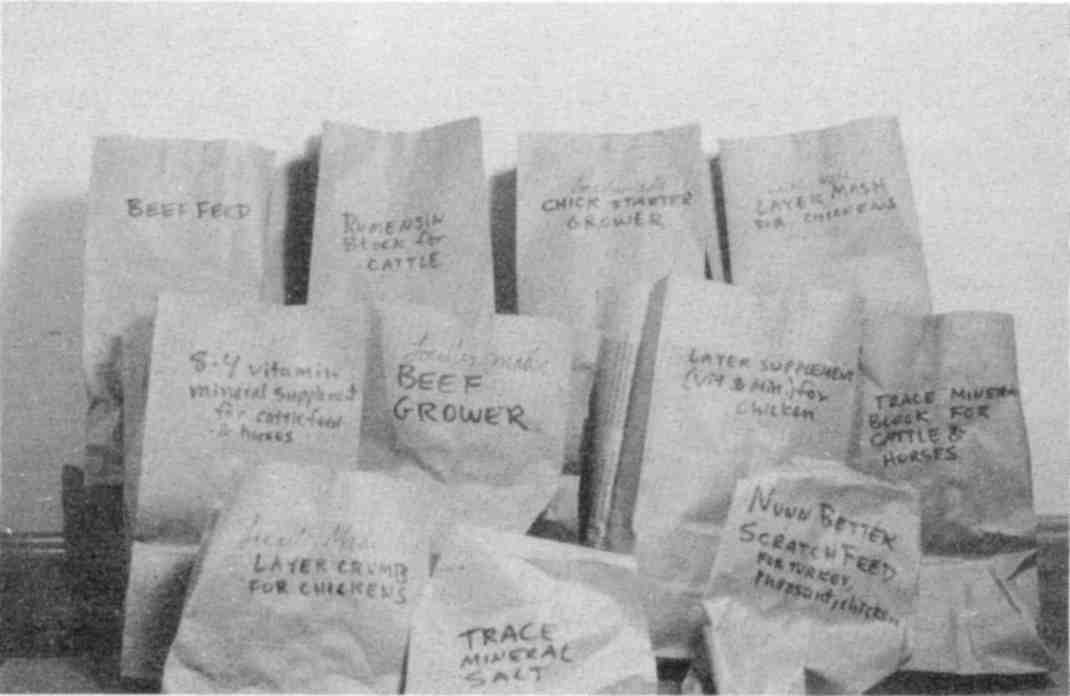 BEEF FEED
RUMENSIN
BLOCK for
CATTLE
CHICK STARTER
GROWER
LAYER MASH
FOR CHICKENS
8-4 vitamin
mineral supplement
for cattle feed
& horses
BEEF
GROWER
LAYER SUPPLEMENT
(Vit & Min.) for
Chicken
TRACE MINERAL
BLOCK FOR
CATTLE &
HORSES
LAYER CRUMB
FOR CHICKENS
TRACE
MINERAL
SALT
NUNN BETTER
SCRATCH FEED
FOR TURKEY,
Pheasant, chicken